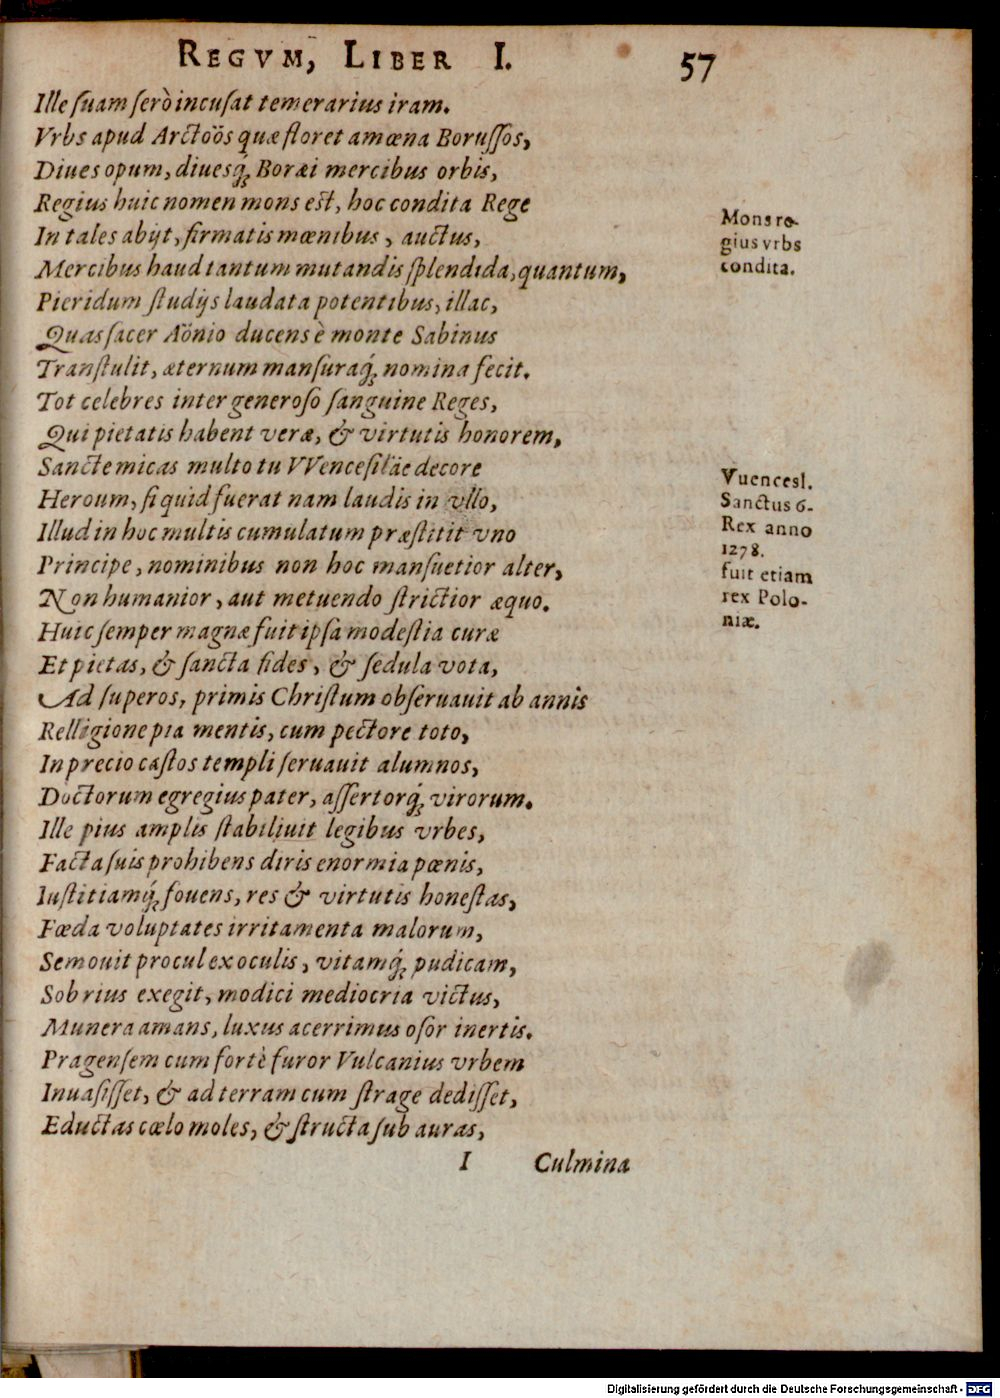 REGVM, LIBER I. 57
Ille ſuam ſerò incuſat temerarius iram.
Vrbs apud Arctoös quæ floret amœna Boruſſos,
Diues opum, diuesq́; Boræi mercibus orbis,
Regius huic nomen mons eſt, hoc condita Rege
In tales abijt, firmatis mœnibus, auctus,
Mercibus haud tantum mutandis ſplendida, quantum,
Pieridum ſtudijs laudata potentibus, illac,
Quas ſacer Aönio ducens è monte Sabinus
Tranſtulit, æternum manſuraq́; nomina fecit.
Tot celebres inter generoſo ſanguine Reges,
Qui pietatis habent veræ, & virtutis honorem,
Sancte micas multo tu VVenceſilæ decore
Heroum, ſi quid fuerat nam laudis in vllo,
Illud in hoc multis cumulatum præſtitit vno
Principe, nominibus non hoc manſuetior alter,
Non humanior, aut metuendo ſtrictior æquo.
Huic ſemper magnæ fuit ipſa modeſtia curæ
Et pietas, & ſancta fides, & ſedula vota,
Ad ſuperos, primis Chriſtum obſeruauit ab annis
Relligione pia mentis, cum pectore toto,
In precio caſtos templi ſeruauit alumnos,
Doctorum egregius pater, aſſertorq́; virorum.
Ille pius amplis ſtabiliuit legibus vrbes,
Facta ſuis prohibens diris enormia pœnis,
Iuſtitiamq́; fouens, res & virtutis honeſtas,
Fœda voluptates irritamenta malorum,
Semouit procul ex oculis, vitamq́; pudicam,
Sobrius exegit, modici mediocria victus,
Munera amans, luxus acerrimus oſor inertis.
Pragenſem cum fortè furor Vulcanius vrbem
Inuaſiſſet, & ad terram cum ſtrage dediſſet,
Eductas cœlo moles, & ſtructa ſub auras,
I Culmina
Mons re-
gius vrbs
condita.
Vuencesl.
Sanctus 6.
Rex anno
1278.
fuit etiam
rex Polo-
niæ.
Digitalisierung gefördert durch die Deutsche Forschungsgemeinschaft - DFG